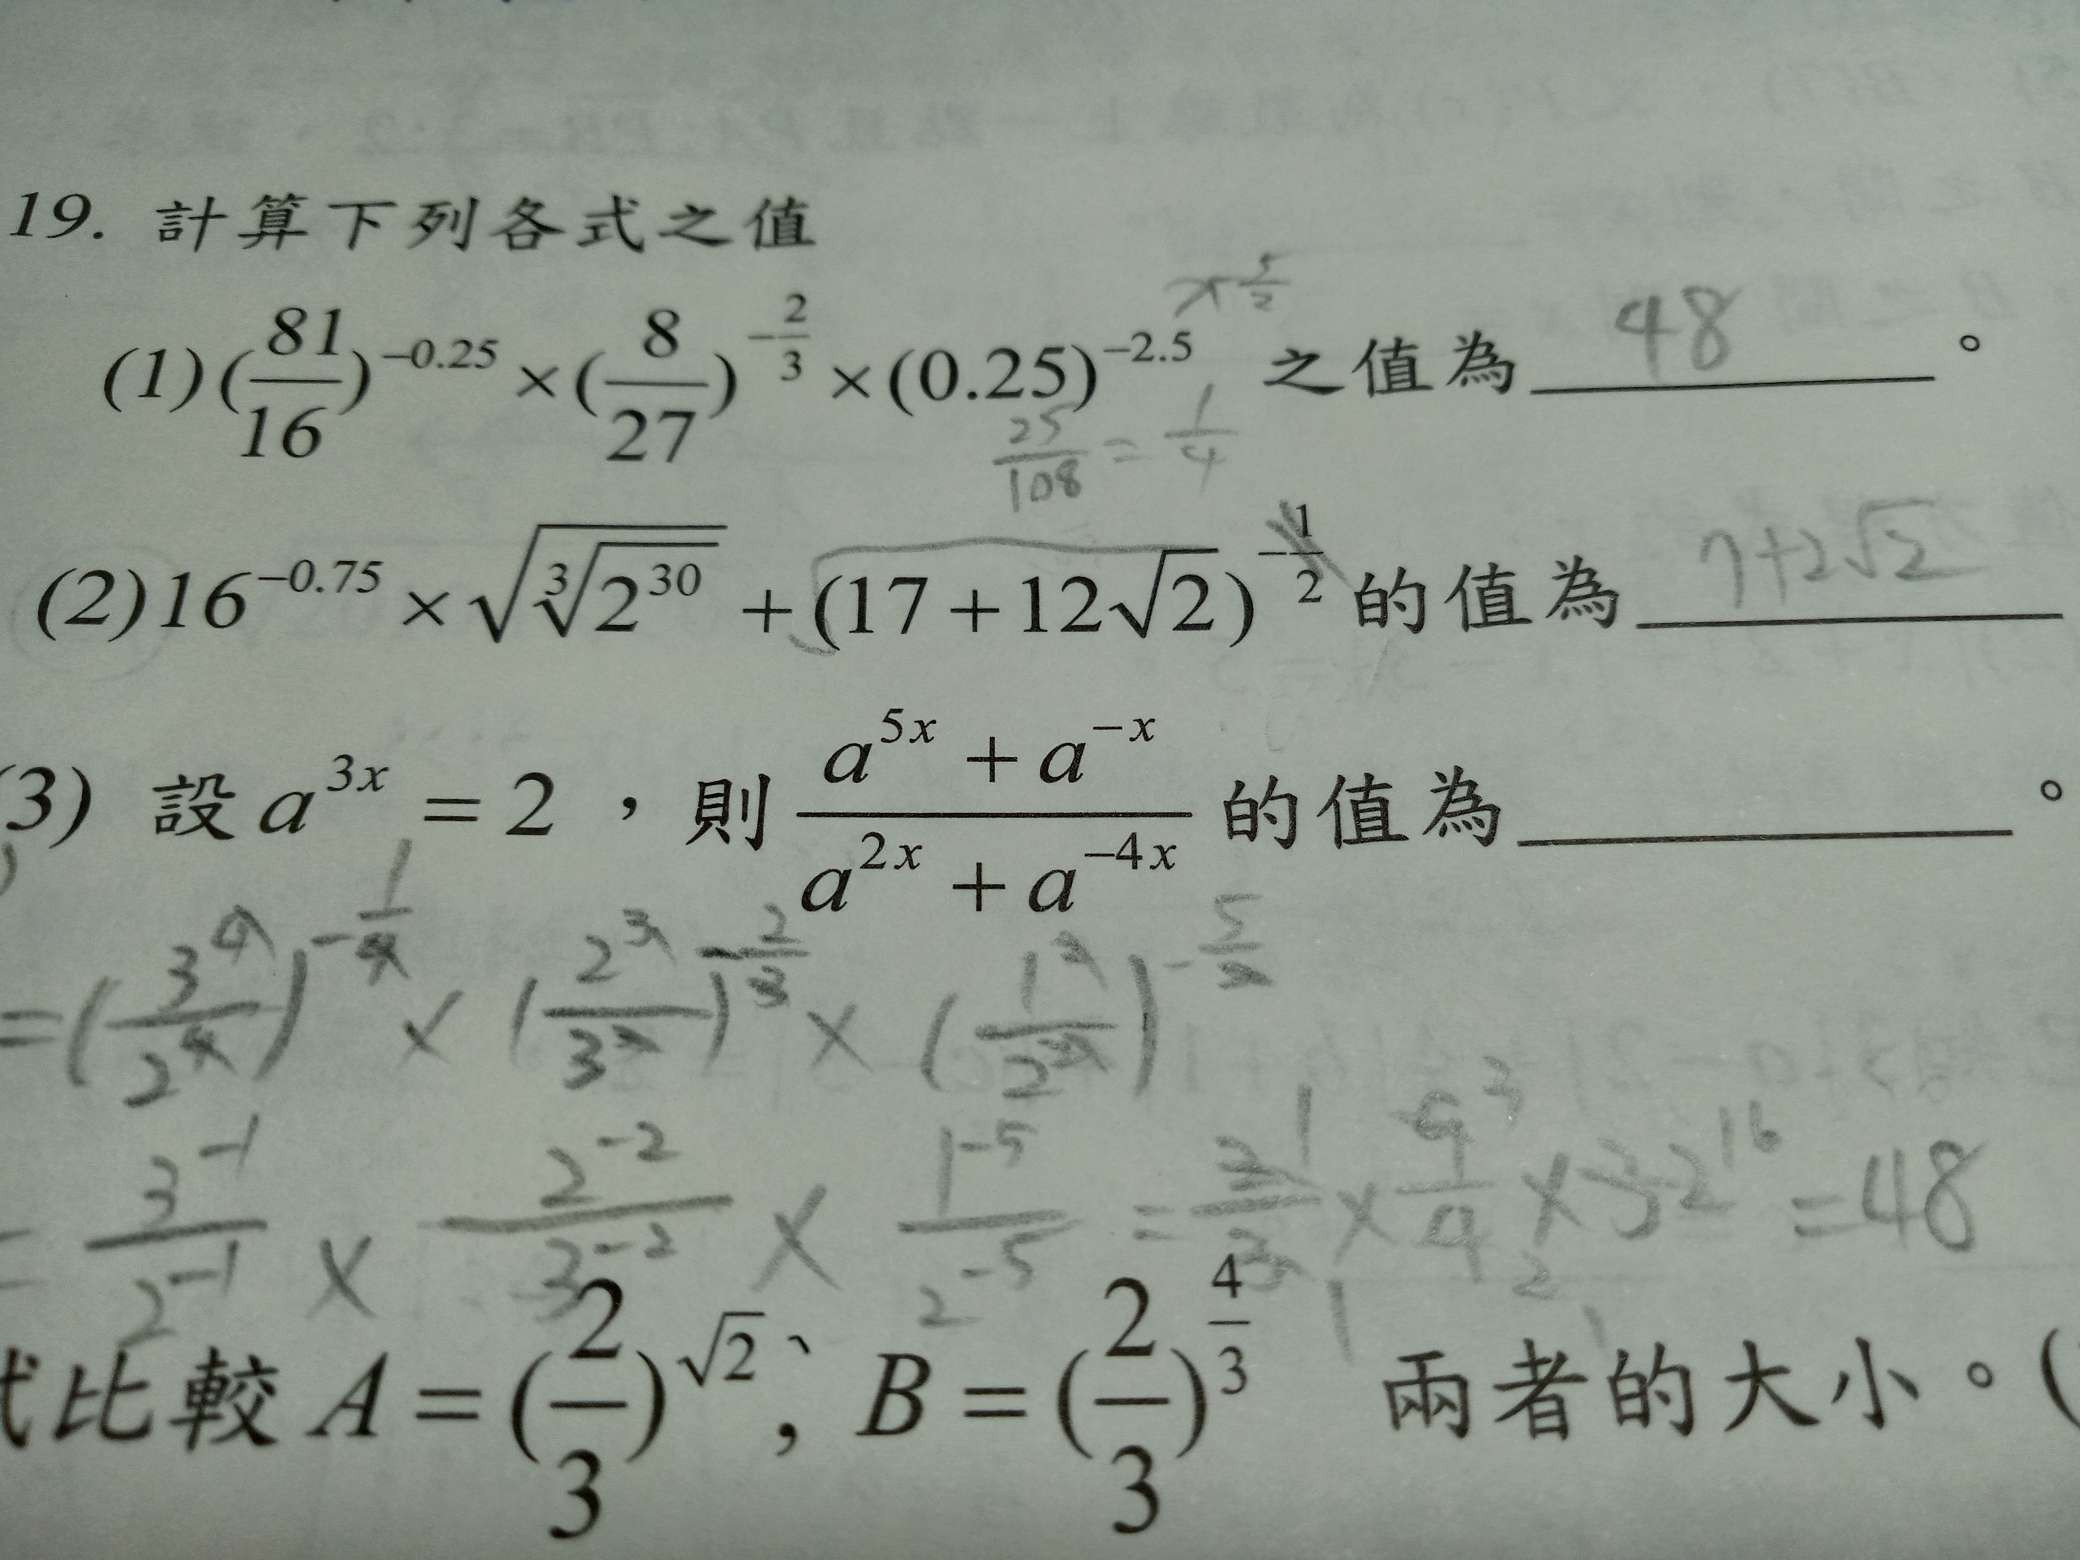 19. 計算下列各式之值
(1) (81/16)^{-0.25} × (8/27)^{-2/3} × (0.25)^{-2.5} 之值為 48 。
x^{5/2}
25/108 = 1/4
(2) 16^{-0.75} × √(∛(2^{30})) + (17 + 12√2)^{-1/2} 的值為 7+2√2
(3) 設 a^{3x} = 2 ，則 (a^{5x} + a^{-x})/(a^{2x} + a^{-4x}) 的值為 。
= (3^4/2^4)^{-1/4} × (2^3/3^3)^{-2/3} × (1^2/2^2)^{-5/2}
= 3^{-1}/2^{-1} × 2^{-2}/3^{-2} × 1^{-5}/2^{-5} = 2/3 × 9/4 × 32 = 48
試比較 A = (2/3)^{√2}、, B = (2/3)^{4/3} 兩者的大小。(